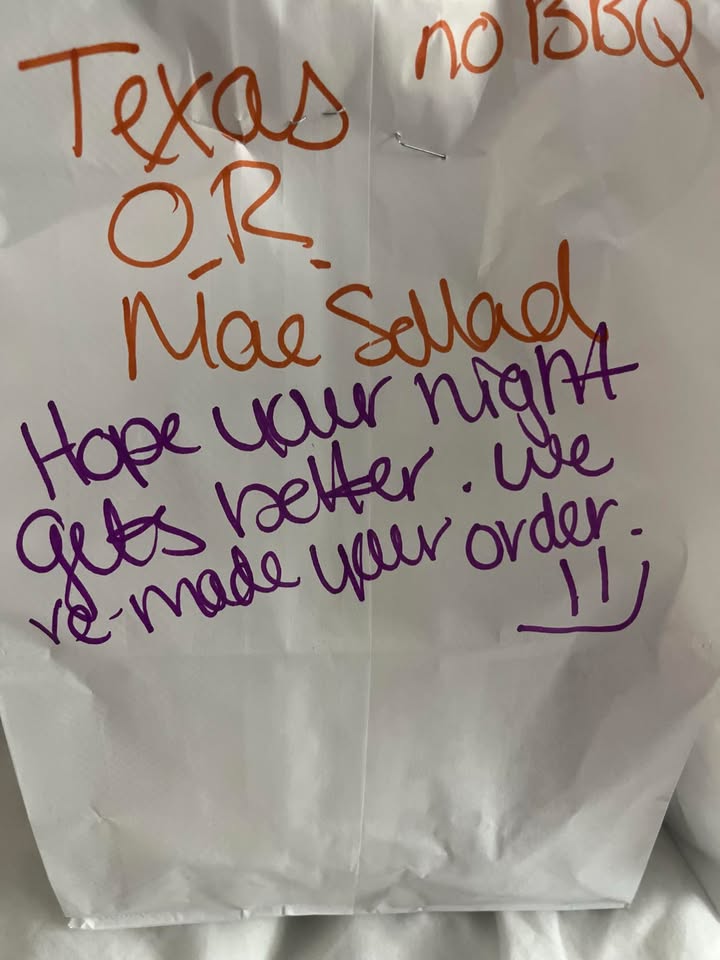 no BBQ
Texas
O.R.
Mac Sallad
Hope your night
gets better. we
re-made your order.